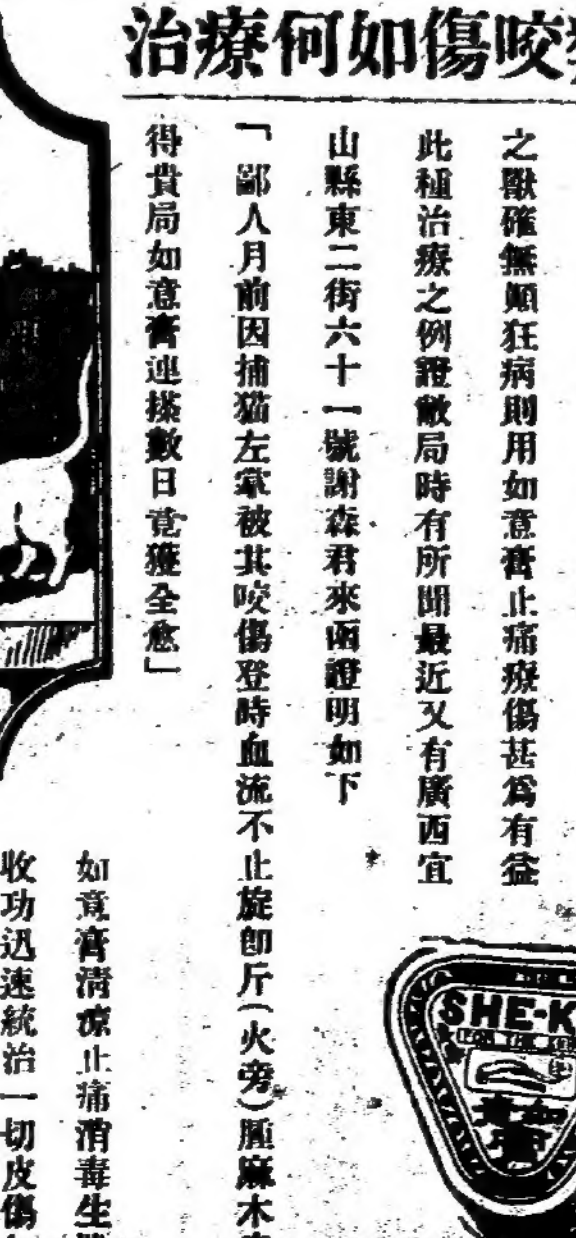 治療何如傷咬
之獸確無顚狂病則用如意膏止痛療傷甚爲有益
此種治療之例證敝局時有所聞最近又有廣西宜
山縣東二街六十一號謝森君來函證明如下
「鄙人月前因捕猫左掌被其咬傷登時血流不止旋卽斤(火旁)腫麻木
得貴局如意膏連搽數日竟獲全愈」
如意膏清凉止痛消毒生
收功迅速統治一切皮傷
SHE-K
FOR THE
如意膏